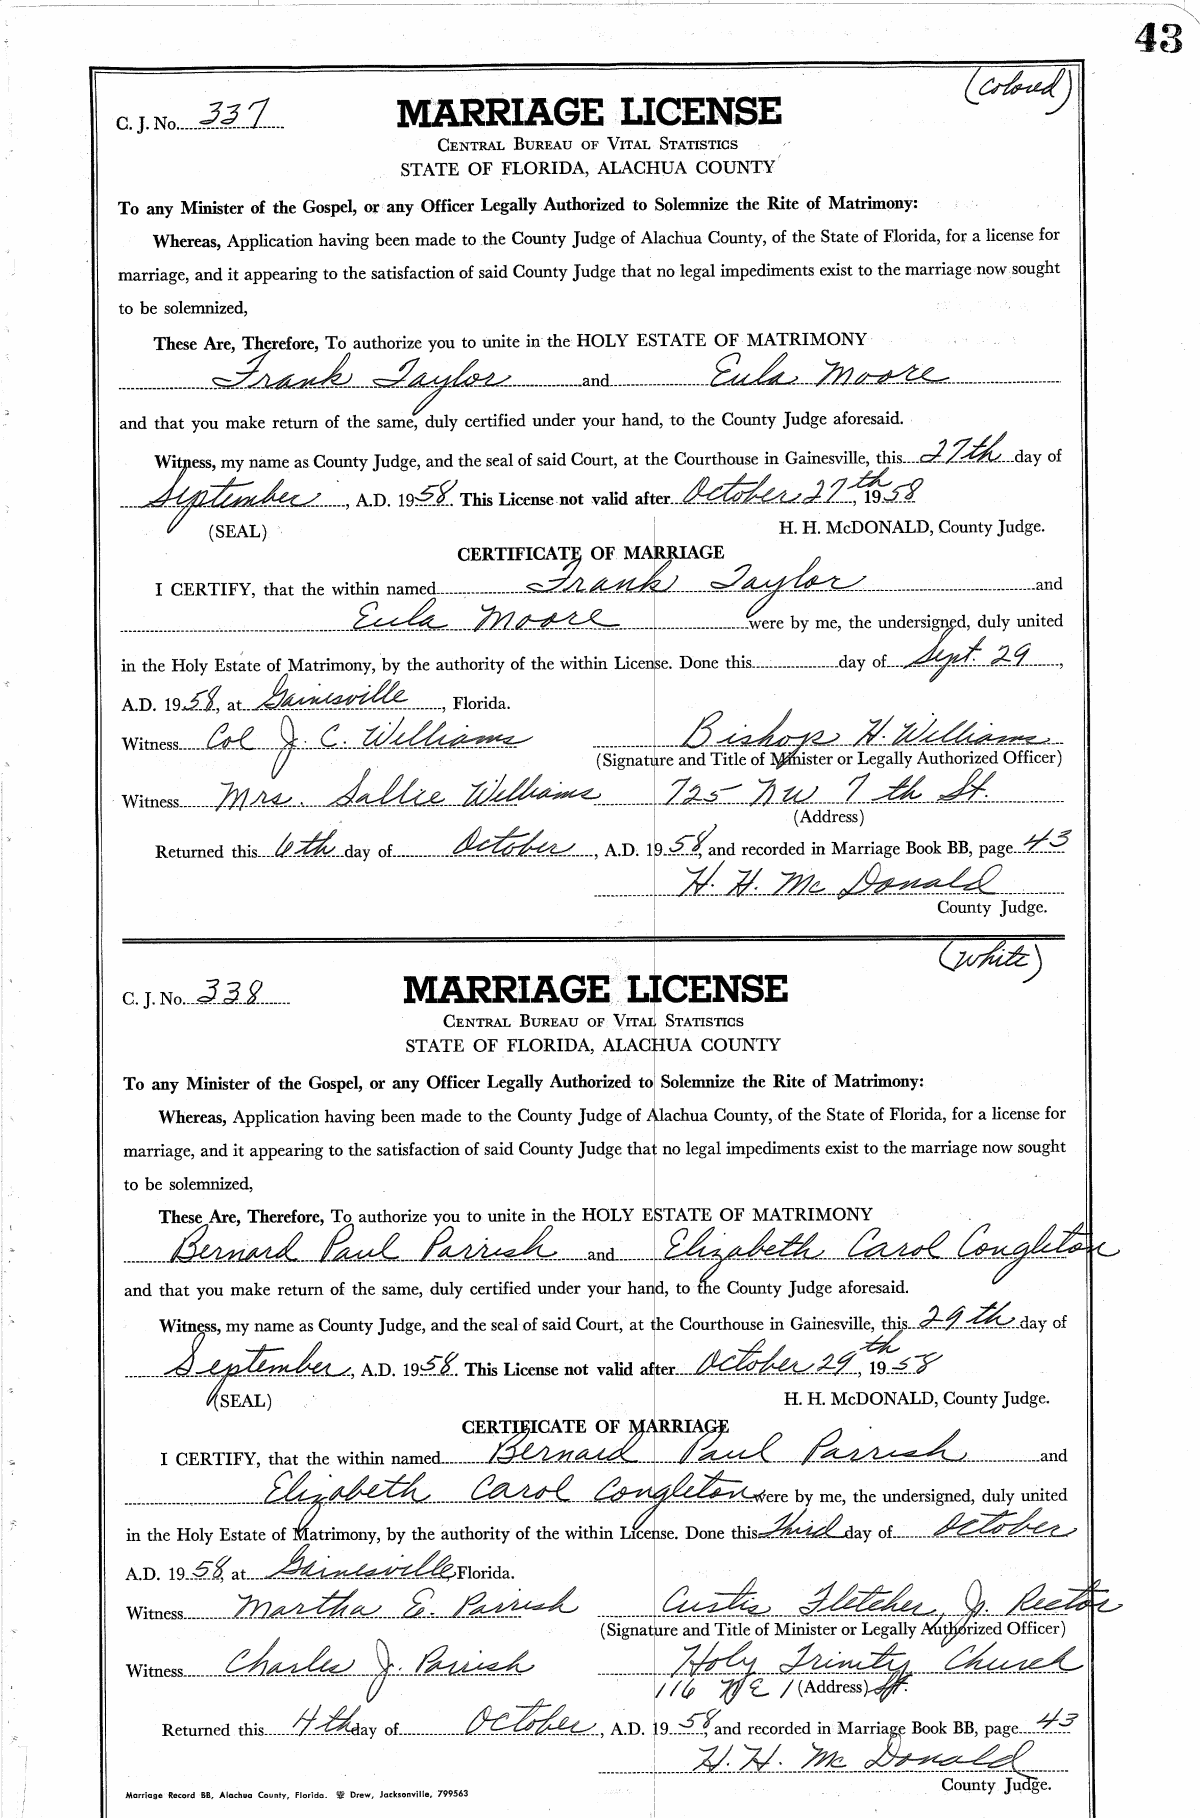 43
(Colored)
C. J. No. 337
MARRIAGE LICENSE
CENTRAL BUREAU OF VITAL STATISTICS
STATE OF FLORIDA, ALACHUA COUNTY
To any Minister of the Gospel, or any Officer Legally Authorized to Solemnize the Rite of Matrimony:
Whereas, Application having been made to the County Judge of Alachua County, of the State of Florida, for a license for
marriage, and it appearing to the satisfaction of said County Judge that no legal impediments exist to the marriage now sought
to be solemnized,
These Are, Therefore, To authorize you to unite in the HOLY ESTATE OF MATRIMONY
Frank Taylor and Eula Moore
and that you make return of the same, duly certified under your hand, to the County Judge aforesaid.
Witness, my name as County Judge, and the seal of said Court, at the Courthouse in Gainesville, this 27th day of
September, A.D. 1958. This License not valid after October 27th, 1958
(SEAL) H. H. McDONALD, County Judge.
CERTIFICATE OF MARRIAGE
I CERTIFY, that the within named Frank Taylor and
Eula Moore were by me, the undersigned, duly united
in the Holy Estate of Matrimony, by the authority of the within License. Done this day of Sept. 29,
A.D. 1958, at Gainesville, Florida.
Witness Col J. C. Williams Bishop H. Williams
(Signature and Title of Minister or Legally Authorized Officer)
Witness Mrs. Sallie Williams 725 NW 7th St.
(Address)
Returned this 6th day of October, A.D. 1958, and recorded in Marriage Book BB, page 43
H. H. McDonald
County Judge.
(White)
C. J. No. 338
MARRIAGE LICENSE
CENTRAL BUREAU OF VITAL STATISTICS
STATE OF FLORIDA, ALACHUA COUNTY
To any Minister of the Gospel, or any Officer Legally Authorized to Solemnize the Rite of Matrimony:
Whereas, Application having been made to the County Judge of Alachua County, of the State of Florida, for a license for
marriage, and it appearing to the satisfaction of said County Judge that no legal impediments exist to the marriage now sought
to be solemnized,
These Are, Therefore, To authorize you to unite in the HOLY ESTATE OF MATRIMONY
Bernard Paul Parrish and Elizabeth Carol Congleton
and that you make return of the same, duly certified under your hand, to the County Judge aforesaid.
Witness, my name as County Judge, and the seal of said Court, at the Courthouse in Gainesville, this 29th day of
September, A.D. 1958. This License not valid after October 29th, 1958
(SEAL) H. H. McDONALD, County Judge.
CERTIFICATE OF MARRIAGE
I CERTIFY, that the within named Bernard Paul Parrish and
Elizabeth Carol Congleton were by me, the undersigned, duly united
in the Holy Estate of Matrimony, by the authority of the within License. Done this Third day of October
A.D. 1958, at Gainesville, Florida.
Witness Martha E. Parrish Custis Fletcher, Jr. Rector
(Signature and Title of Minister or Legally Authorized Officer)
Witness Charles J. Parrish Holy Trinity Church
116 NE 1 (Address) St.
Returned this 4th day of October, A.D. 1958, and recorded in Marriage Book BB, page 43
H. H. McDonald
County Judge.
Marriage Record BB, Alachua County, Florida. Drew, Jacksonville, 799563